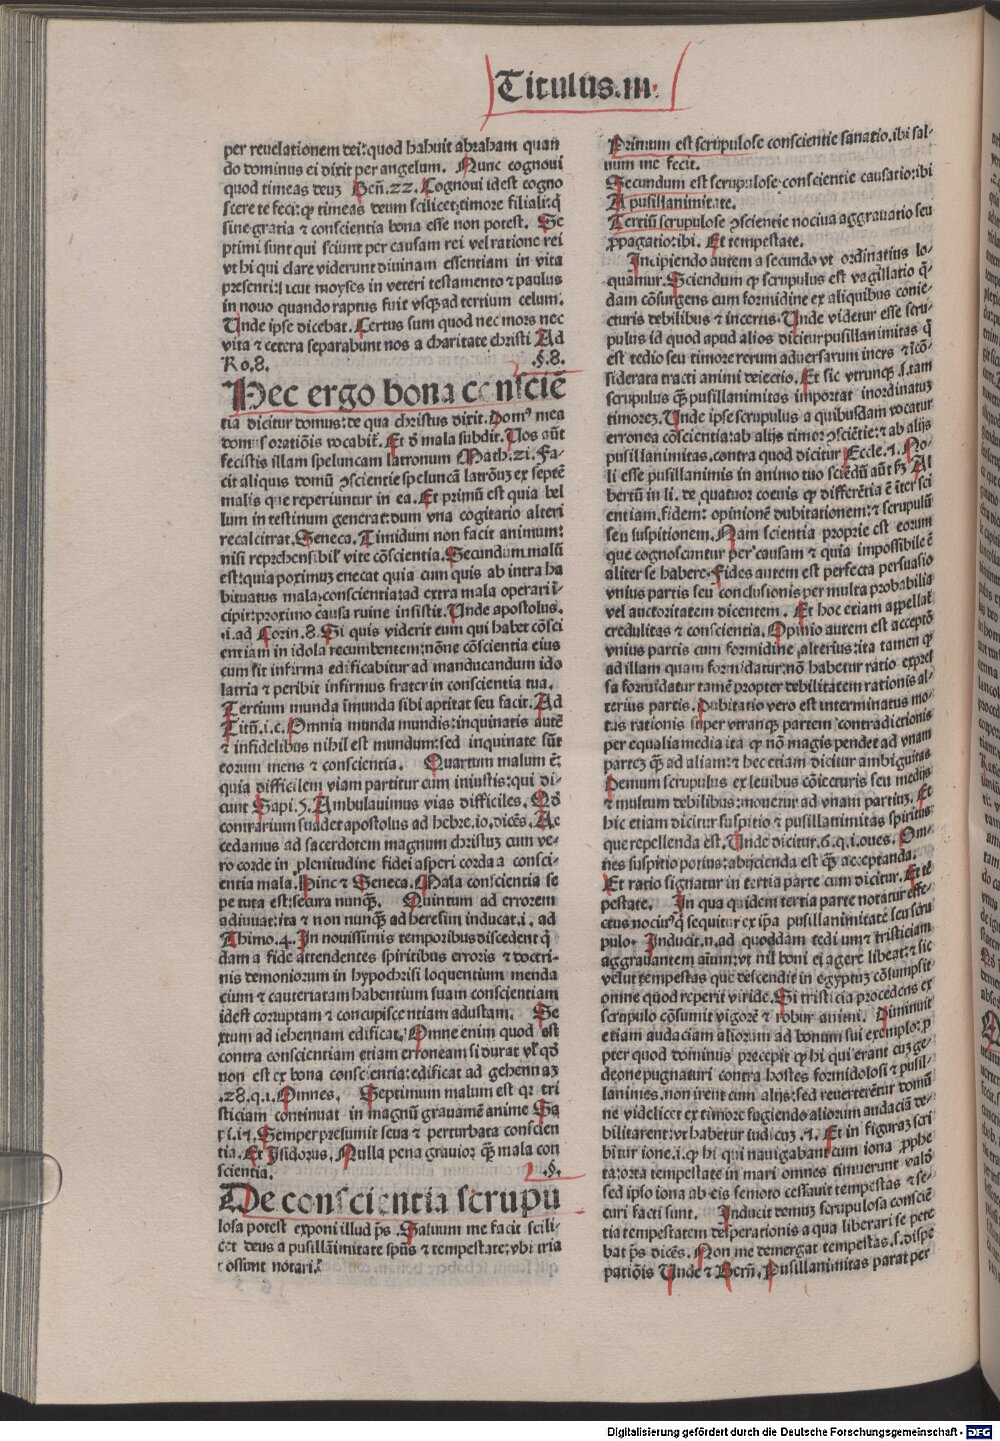 Titulus.iii.
per reuelationem dei: quod habuit abraham quan
do dominus ei dixit per angelum. Nunc cognoui
quod timeas deuz Geñ.22. Cognoui idest cogno
scere te feci: qꝫ timeas deum scilicet: timore filiali: q̃
sine gratia ⁊ conscientia bona esse non potest. Se
ptimi sunt qui sciunt per causam rei vel ratione rei
vt hi qui clare viderunt diuinam essentiam in vita
presenti: sicut moyses in veteri testamento ⁊ paulus
in nouo quando raptus fuit vsqꝫ ad tertium celum.
Unde ipse dicebat. Certus sum quod nec mors nec
vita ⁊ cetera separabunt nos a charitate christi Ad
Ro.8. .§.8.
Hec ergo bona consciẽ
tia dicitur domus: de qua christus dixit. Domꝰ mea
domus oratiõis vocabit̃. Et ð mala subdit. Uos aũt
fecistis illam speluncam latronum Math.21. Fa-
cit aliquis domũ ꝯscientie speluncã latrõuz ex septẽ
malis que reperiuntur in ea. Et primũ est quia bel
lum intestinum generat: dum vna cogitatio alteri
recalcitrat. Seneca. Timidum non facit animum:
nisi reprehensibil̃ vite cõscientia. Secundum malũ
est: quia proximuz enecat quia cum quis ab intra ha
bituatus mala conscientia: ad extra mala operari ĩ-
cipit: protino causa ruine insistit. Unde apostolus.
.i. ad Corin.8. Si quis viderit eum qui habet cõsci
entiam in idola recumbentem: nõne cõscientia eius
cum sit infirma edificabitur ad manducandum ido
latria ⁊ peribit infirmus frater in conscientia tua.
Tertium munda ĩmunda sibi aptitat seu facit. Ad
Titũ.i.c. Omnia munda mundis: inquinatis autẽ
⁊ infidelibus nihil est mundum: sed inquinate sũt
eorum mens ⁊ conscientia. Quartum malum ẽ:
quia difficilem viam partitur cum iniustis: qui di-
cunt Sapi.5. Ambulauimus vias difficiles. Qð
contrarium suadet apostolus ad hebre.10. dicẽs. Ac
cedamus ad sacerdotem magnum christuz cum ve-
ro corde in plenitudine fidei asperi corda a consci-
entia mala. Hinc ⁊ Seneca. Mala conscientia se
pe tuta est: secura nunqꝫ. Quintum ad errorem
adiuuat: ita ⁊ non nunqꝫ ad heresim inducat .i. ad
Thimo.4. In nouissimis temporibus discedent q̃
dam a fide attendentes spiritibus erroris ⁊ doctri-
nis demoniorum in hypochrisi loquentium menda
cium ⁊ cauteriatam habentium suam conscientiam
idest corruptam ⁊ concupiscentiam adustam. Se
xtum ad iehennam edificat. Omne enim quod est
contra conscientiam etiam erroneam si durat vl̃ qð
non est ex bona conscientia: edificat ad gehennaz
.28.q.1. Omnes. Septimum malum est qꝛ tri
sticiam continuat in magnũ grauamẽ anime Sa
p i.17. Semper presumit seua ⁊ perturbata conscien
tia. Et Isidorus. Nulla pena grauior qꝫ mala con
scientia. .§.
De conscientia scrupu
losa potest exponi illud ps̃. Saluum me facit scili-
cet deus a pusillãimitate spũs ⁊ tempestate: vbi tria
possunt notari.
Primum est scrupulose conscientie sanatio. ibi sal-
uum me fecit.
Secundum est scrupulose conscientie causatio: ibi
A pusillanimitate.
Tertiũ scrupulose ꝯscientie nociua aggrauatio seu
propagatio: ibi. Et tempestate.
Incipiendo autem a secundo vt ordinatius lo-
quamur. Sciendum qꝫ scrupulus est vagillatio q̃-
dam cõsurgens cum formidine ex aliquibus conie-
cturis debilibus ⁊ incertis. Unde videtur esse scru-
pulus id quod apud alios dicitur pusillanimitas q̃
est tedio seu timore rerum aduersarum iners ⁊ ĩcõ-
siderata tracti animi deiectio. Et sic vtrunqꝫ .s. tam
scrupulus qꝫ pusillanimitas importat inordinatuz
timorez. Unde ipse scrupulus a quibusdam vocatur
erronea cõscientia: ab alijs timor ꝯsciẽtie: ⁊ ab alijs
pusillanimitas. contra quod dicitur Eccle.7. No-
li esse pusillanimis in animo tuo sciẽdũ aũt ẽ Al
bertũ in li. de quatuor coeuis qꝫ differẽtia ẽ ĩter sci
entiam, fidem: opinionẽ dubitationem: ⁊ scrupulũ
seu suspitionem. Nam scientia proprie est eorum
que cognoscuntur per causam ⁊ quia impossibile ẽ
aliter se habere. Fides autem est perfecta persuasio
vnius partis seu conclusionis per multa probabilia
vel auctoritatem dicentem. Et hoc etiam appellat̃
credulitas ⁊ conscientia. Opinio autem est acceptõ
vnius partis cum formidine alterius: ita tamen qꝫ
ad illam quam formidatur: nõ habetur ratio expres
sa formidatur tamẽ propter debilitatem rationis al-
terius partis. Dubitatio vero est interminatus mo-
tus rationis super vtranqꝫ partem contradictionis
per equalia media ita qꝫ nõ magis pendet ad vnam
partez qꝫ ad aliam: ⁊ hec etiam dicitur ambiguitas
Demum scrupulus ex leuibus cõiecturis seu medijs
⁊ multum debilibus: mouetur ad vnam partiuz. Et
hic etiam dicitur suspitio ⁊ pusillanimitas spiritus
que repellenda est. Unde dicitur.6.q.1.oues. Om-
nes suspitio potius: abijcienda est qꝫ acceptanda.
Et ratio signatur in tertia parte cum dicitur. Et tẽ
pestate. In qua quidem tertia parte notatur effe-
ctus nociuꝰ q̃ sequitur ex ip̃a pusillanimitatẽ seu scru
pulo: Inducit .n. ad quoddam tediũ ⁊ tristiciam
aggrauantem aium: vt nil boni ei agere libeat: ⁊ sic
velut tempestas que descendit in egyptuz cõsumpsit
omne quod reperit viride. Si tristicia procedens ex
scrupulo cõsumit vigorẽ ⁊ robur animi. Diminuit
etiam audaciam aliorum ad bonum sui exemplo: p
pter quod dominus precepit qꝫ hi qui erant cuz ge-
deone pugnaturi contra hostes formidolosi ⁊ pusil-
lanimes, non irent cum alijs: sed reuerterẽtur domũ
ne videlicet ex timore fugiendo aliorum audaciã de-
bilitarent: vt habetur iudicuz .7. Et in figuraz scri
bitur ione.i. qꝫ hi qui nauigabant cum iona prophe
ta: orta tempestate in mari omnes timuerunt valð
sed ipso iona ab eis semoto cessauit tempestas ⁊ se-
curi facti sunt. Inducit domuz scrupulosa consciẽ
tia tempestatem desperationis a qua liberari se pete
bat ps̃ dicẽs. Non me demergat tempestas .s. dispe
patiõis Unde ⁊ Berñ. Pusillanimitas parat per
Digitalisierung gefördert durch die Deutsche Forschungsgemeinschaft - DFG